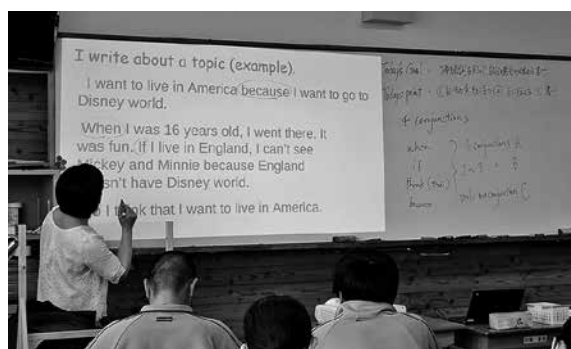 I write about a topic (example).
I want to live in America because I want to go to
Disney world.
When I was 16 years old, I went there. It
was fun. If I live in England, I can't see
Mickey and Minnie because England
sn't have Disney world.
I think that I want to live in America.
Today's Goal
Today's point
4 conjunctions
when
if
think (that)
because
conjunctions A
B
conjunction C